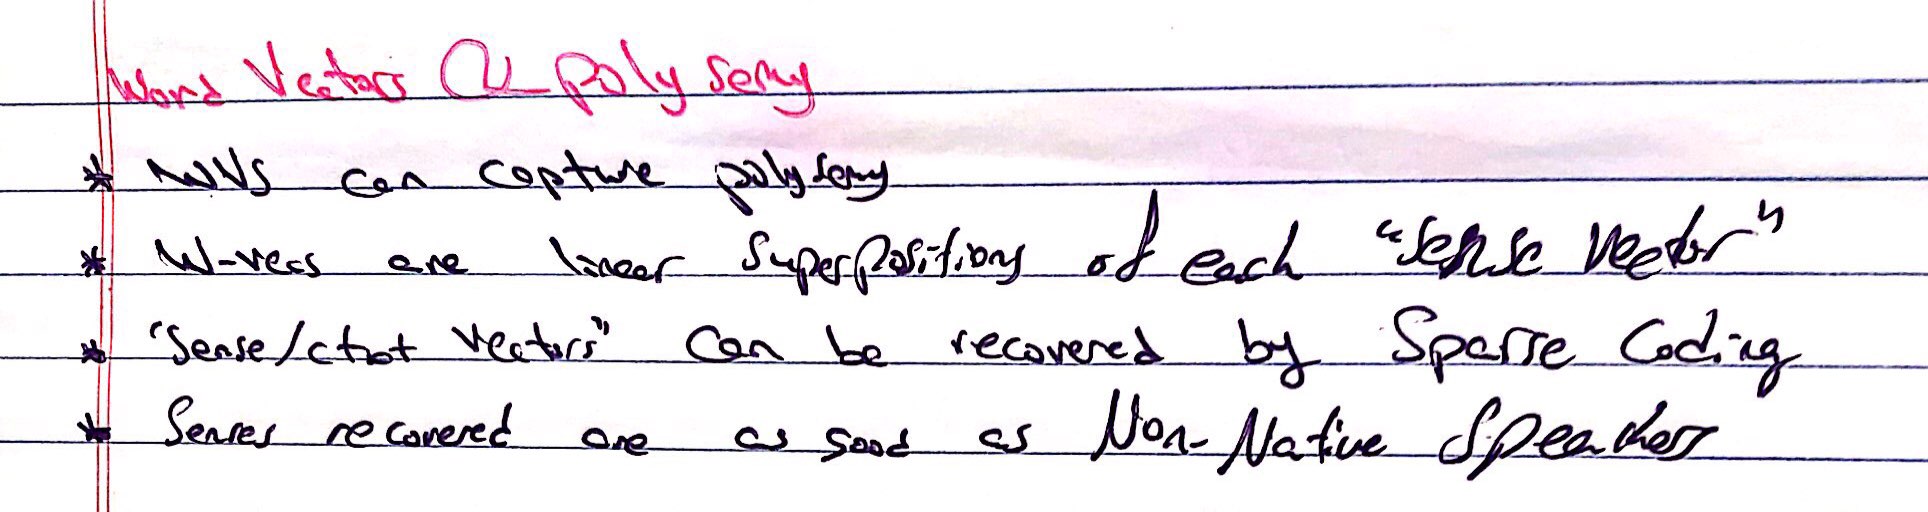 Word Vectors & polysemy
* WVs can capture polysemy
* W-vecs are linear Superpositions of each "sense vector"
* "Sense/ctxt vectors" can be recovered by Sparse Coding
* Senses recovered are as good as Non-Native Speakers